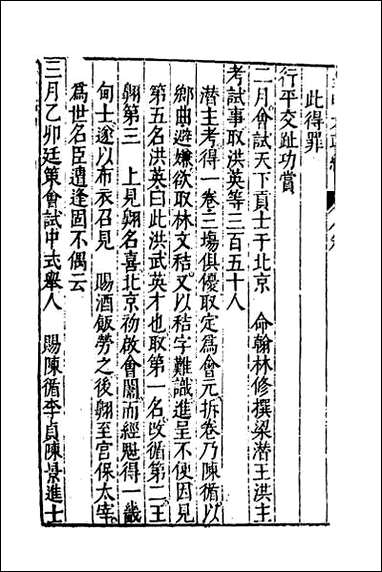 此得罪
行平交趾功賞
二月會試天下貢士于北京　命翰林修撰梁潛王洪主
考試事取洪英等三百五十人
潛主考得一卷三場俱優取定爲會元拆卷乃陳循以
鄉曲避嫌欲取林文秸又以秸字難識進呈不便因見
第五名洪英曰此洪武英才也取第一名改循第二王
翱第三　上見翱名喜北京初啟會闈而經魁得一畿
甸士遂以布衣召見　賜酒飯勞之後翱至宫保太宰
爲世名臣遭逢固不偶云
三月乙卯廷策會試中式舉人　賜陳循李貞陳景進士